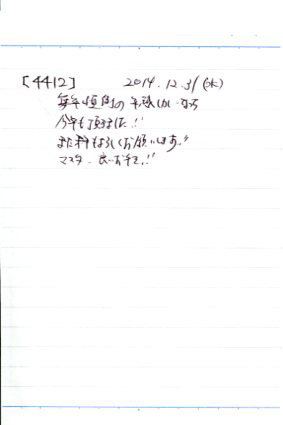 [4412] 2014.12.31(水)
毎年恒例の年越し
今年も頂きました!!
また来年もよろしくお願いします!!
マスター 良いお年を!!